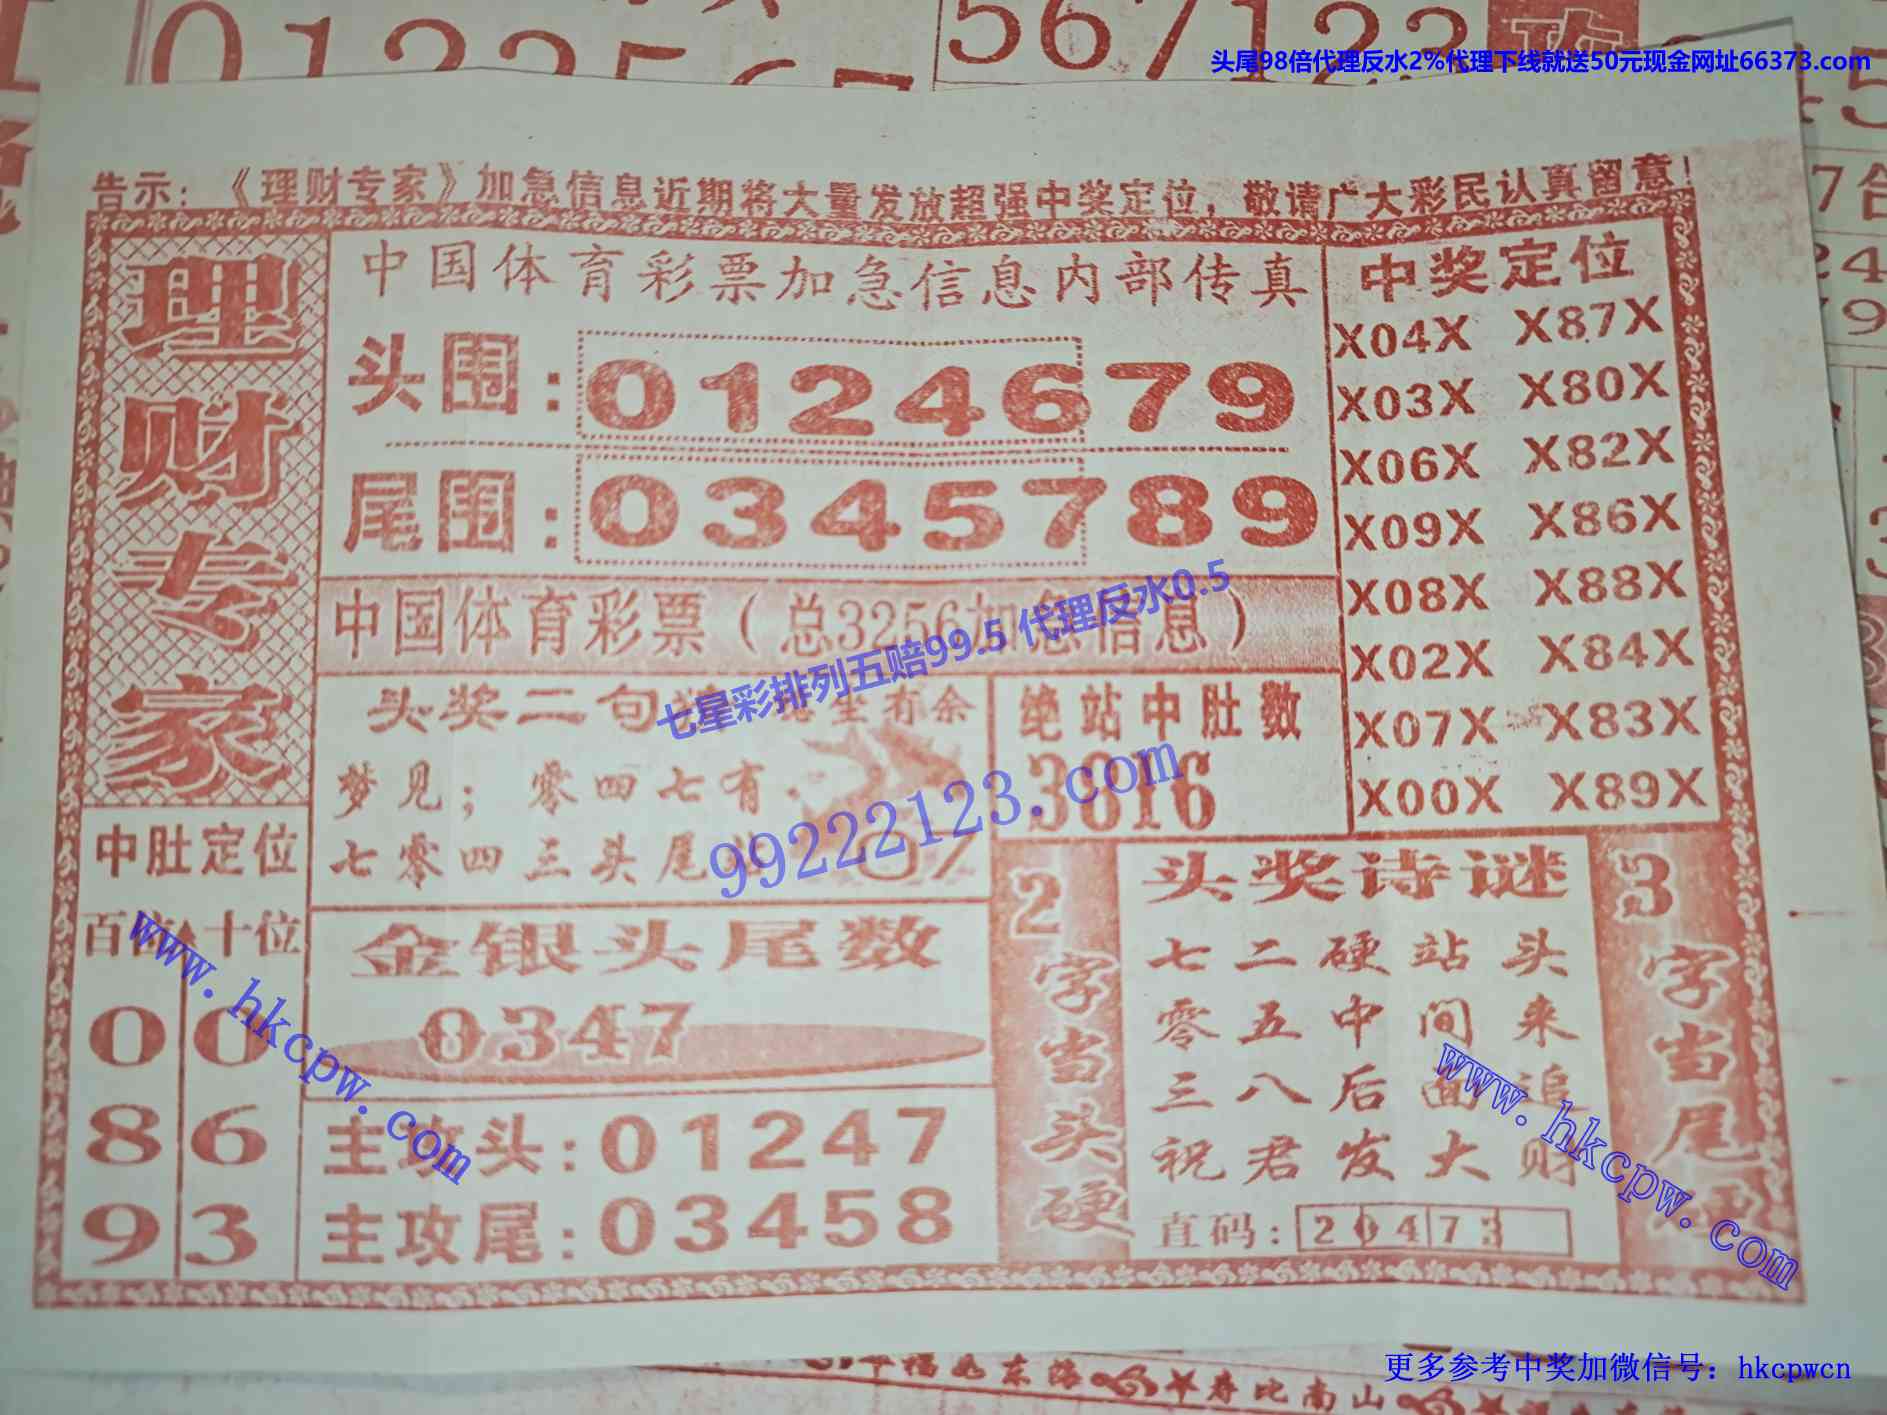 0122567
567123
头尾98倍代理反水2%代理下线就送50元现金网址66373.com
告示：《理财专家》加急信息近期将大量发放超强中奖定位，敬请广大彩民认真留意！
理财专家
中国体育彩票加急信息内部传真
头围：0124679
尾围：0345789
中国体育彩票（总3256加急信息）
七星彩排列五赔99.5 代理反水0.5
中奖定位
X04X X87X
X03X X80X
X06X X82X
X09X X86X
X08X X88X
X02X X84X
X07X X83X
X00X X89X
头奖二句
梦见；零四七有
七零四三头尾
绝站中肚数
3616
99222123.com
中肚定位
百位 十位
0 0
8 6
9 3
www.hkcpw.com
金银头尾数
0347
主攻头：01247
主攻尾：03458
2字当头硬
头奖诗谜
七二硬站头
零五中间来
三八后面追
祝君发大财
直码：20473
3字当尾
www.hkcpw.com
福如东海
寿比南山
更多参考中奖加微信号：hkcpwcn